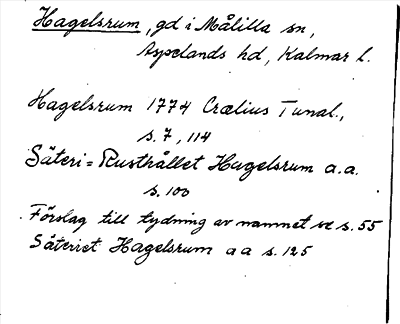 Hagelsrum, gd i Målilla sn,
Aspelands hd, Kalmar l.
Hagelsrum 1774 Crælius Tunal.,
s. 7, 114
Säteri= Rusthållet Hagelsrum a.a.
s. 100
Förslag till tydning av namnet se s. 55
Säteriet Hagelsrum a a s. 125